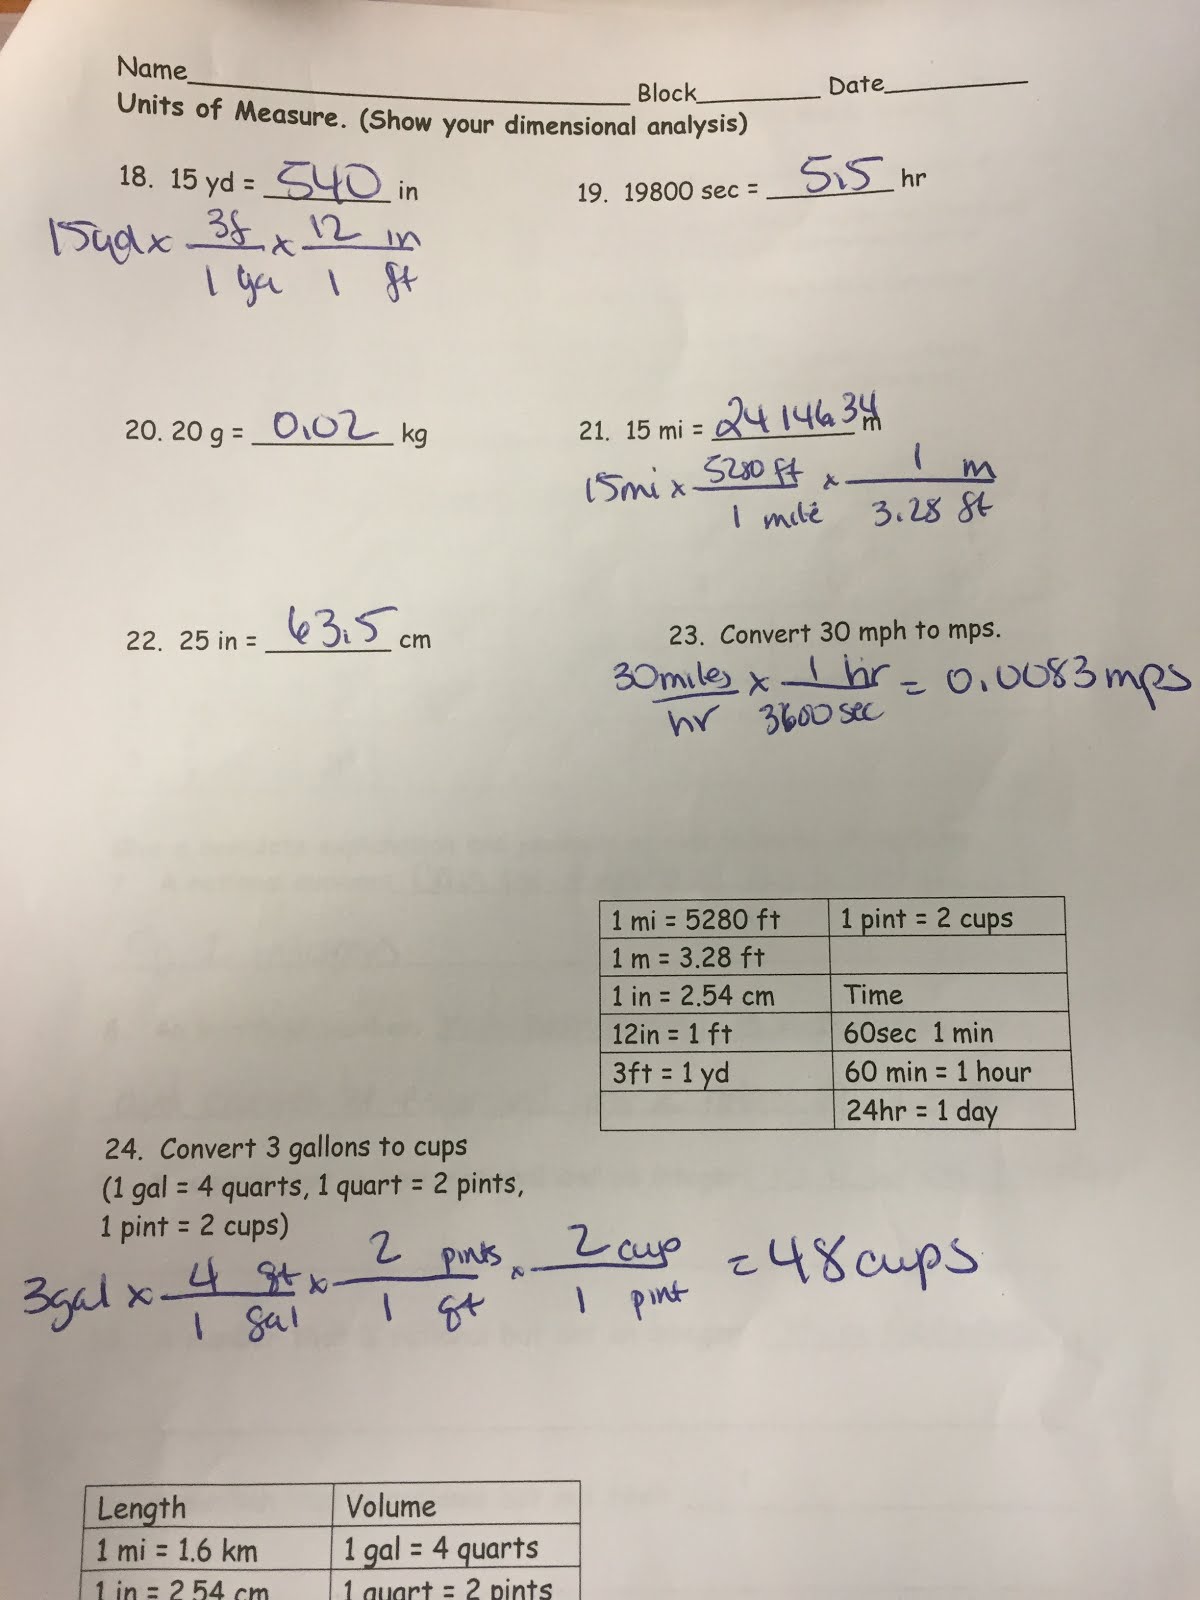 Name__________ Block______ Date______
Units of Measure. (Show your dimensional analysis)
18. 15 yd = 540 in
15yd x 3f x 12 in
1 yd 1 ft
19. 19800 sec = 5.5 hr
20. 20 g = 0.02 kg
21. 15 mi = 24146.34 m
15mi x 5280 ft x 1 m
1 mile 3.28 ft
22. 25 in = 63.5 cm
23. Convert 30 mph to mps.
30miles x 1 hr = 0.0083 mps
hr 3600 sec
1 mi = 5280 ft 1 pint = 2 cups
1 m = 3.28 ft
1 in = 2.54 cm Time
12in = 1 ft 60sec 1 min
3ft = 1 yd 60 min = 1 hour
24hr = 1 day
24. Convert 3 gallons to cups
(1 gal = 4 quarts, 1 quart = 2 pints,
1 pint = 2 cups)
3gal x 4 qt x 2 pints x 2 cup = 48 cups
1 gal 1 qt 1 pint
Length Volume
1 mi = 1.6 km 1 gal = 4 quarts
1 in = 2.54 cm 1 quart = 2 pints